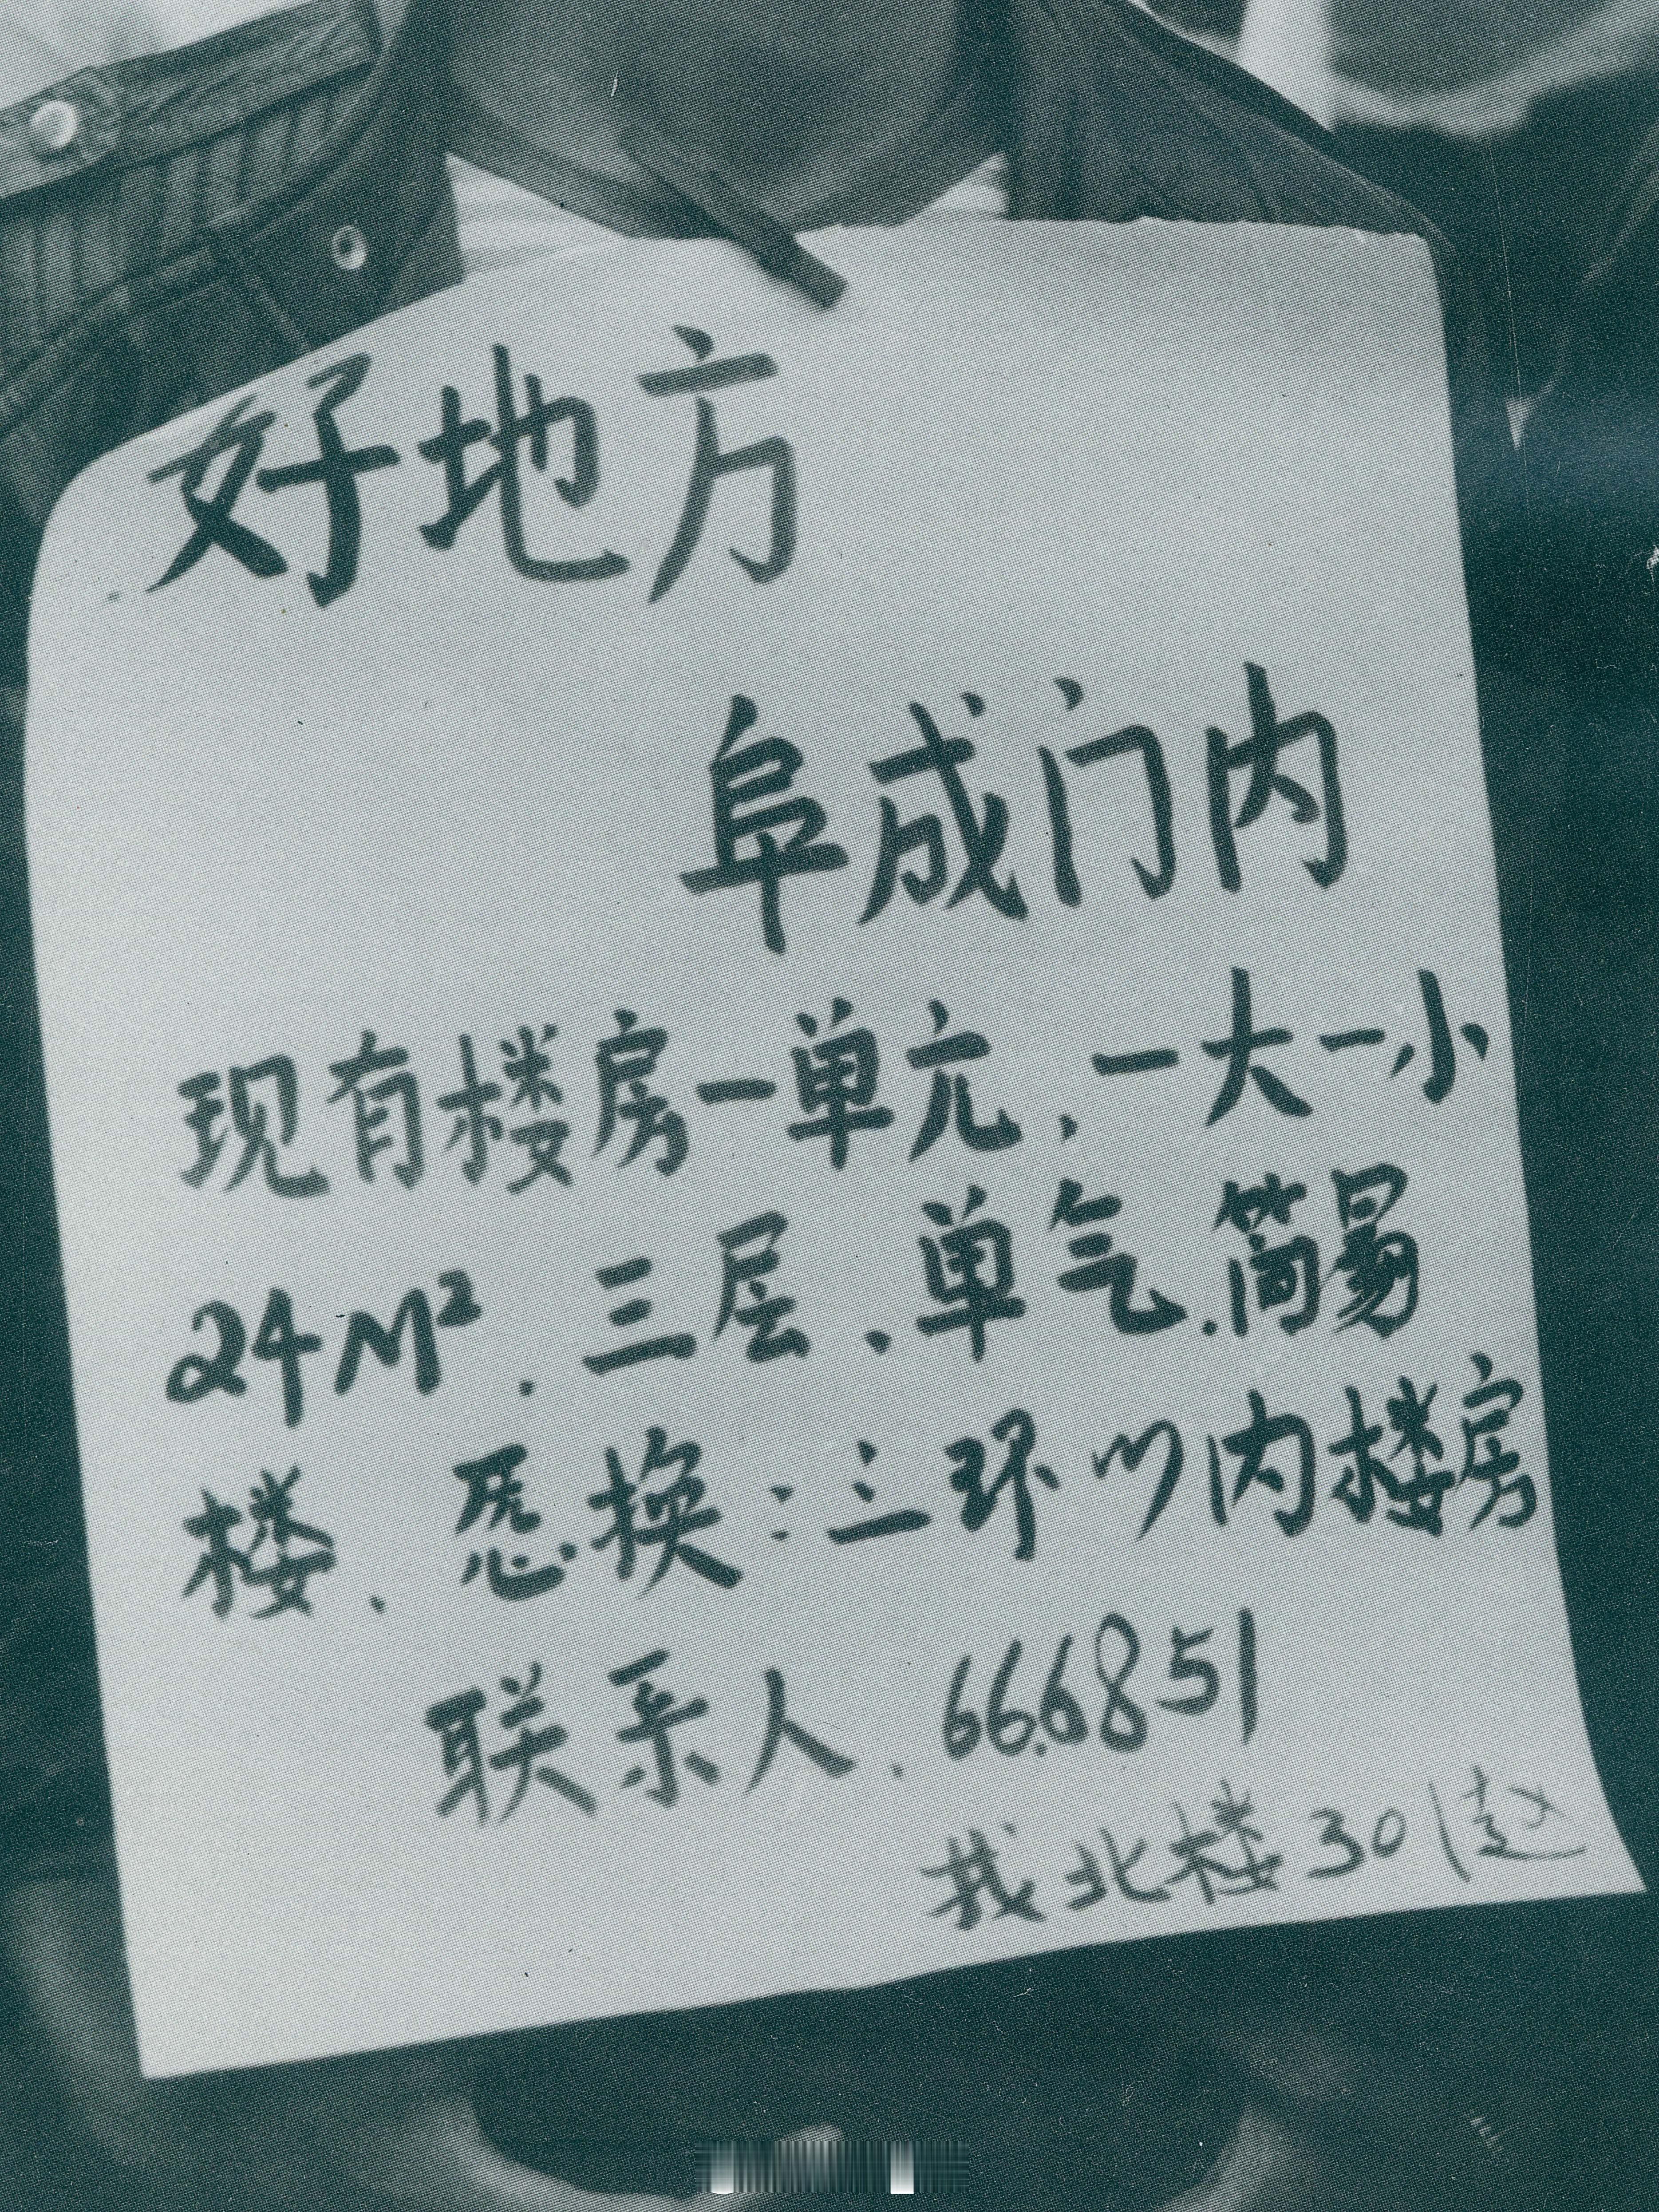 好地方
阜成门内
现有楼房一单元，一大一小
24M²．三层、单气．简易
楼．恳换：三环以内楼房
联系人．666851
找北楼301赵